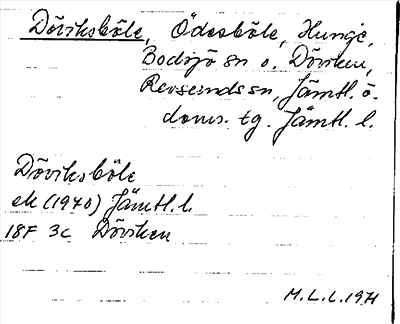 Döviksböle, Ödesböle, Hunge,
Bodsjö sn o. Döviken,
Revsunds sn, Jämtl. ö.
doms. tg. Jämtl. l.
Döviksböle
ek (1940) Jämtl. l.
18F 3c Döviken
M.L.L. 1971